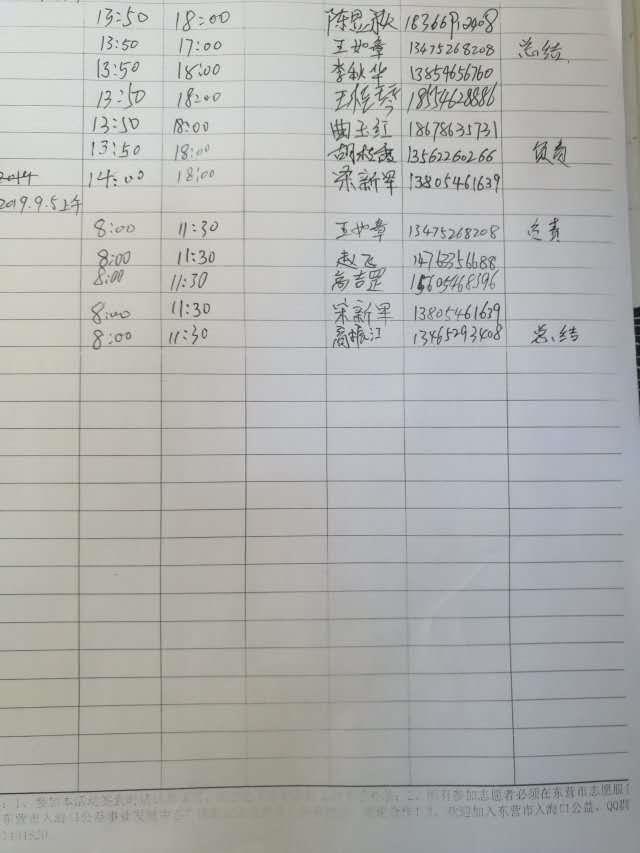 13:50 18:00 陈思 18366
13:50 17:00 王如章 13475268208 总结
13:50 18:00 李秋华 13854656760
13:50 18:00 王 18554628886
13:50 18:00 曲玉红 18678635731
13:50 18:00 胡 13562260266 负责
14:00 18:00 宋新军 13805461639
2019.9.5上午
8:00 11:30 王如章 13475268208 负责
8:00 11:30 赵飞 14763356688
8:00 11:30 高吉罡 15605468396
8:00 11:30 宋新军 13805461639
8:00 11:30 高振江 13465293408 总结
1、参加本活动 2、所有参加志愿者必须在东营市志愿服
东营市入海口公益事业发展中心 合作！3、欢迎加入东营市入海口公益、QQ群